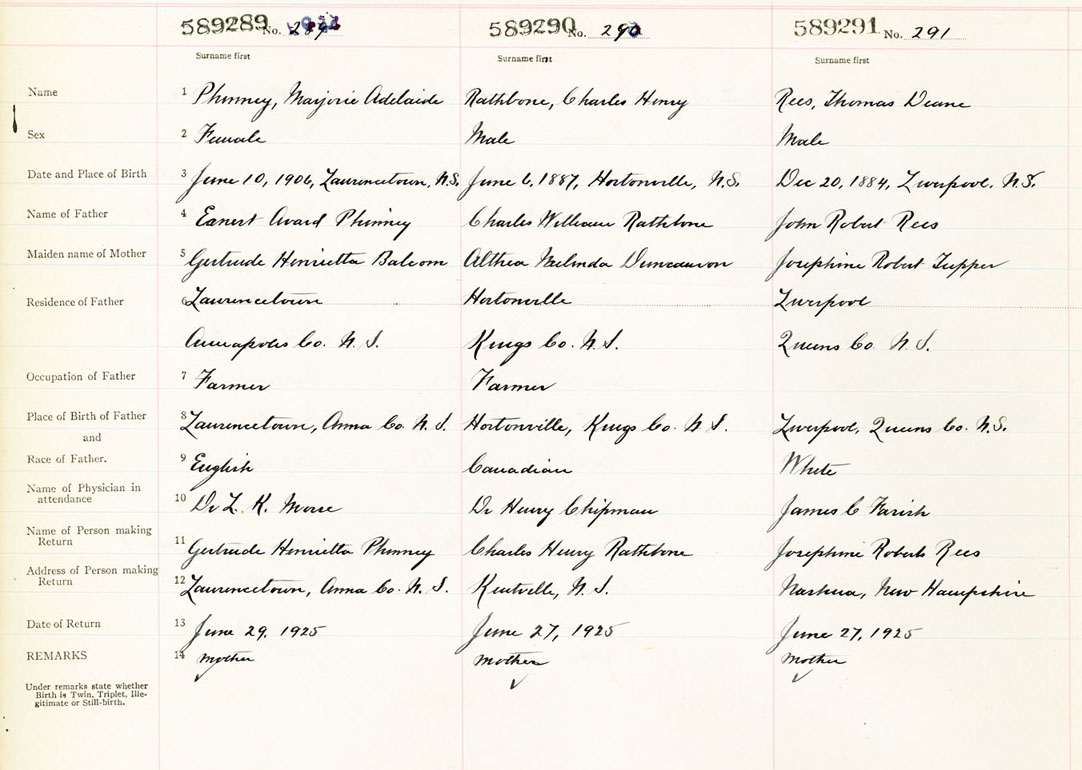 589289 No. 289 589290 No. 290 589291 No. 291
Surname first Surname first Surname first
Name 1 Phinney, Marjorie Adelaide Rathbone, Charles Henry Rees, Thomas Deane
Sex 2 Female Male Male
Date and Place of Birth 3 June 10, 1906, Laurencetown, N.S. June 6, 1887, Hortonville, N.S. Dec 20, 1884, Liverpool, N.S.
Name of Father 4 Earnest Avard Phinney Charles William Rathbone John Robert Rees
Maiden name of Mother 5 Gertrude Henrietta Balcom Althea Melinda Duncanson Josephine Robert Tupper
Residence of Father 6 Laurencetown Hortonville Liverpool
Annapolis Co. N.S. Kings Co. N.S. Queens Co. N.S.
Occupation of Father 7 Farmer Farmer
Place of Birth of Father 8 Laurencetown, Anna Co. N.S. Hortonville, Kings Co. N.S. Liverpool, Queens Co. N.S.
and
Race of Father. 9 English Canadian White
Name of Physician in
attendance 10 Dr L. K. Morse Dr Henry Chipman James C Farish
Name of Person making
Return 11 Gertrude Henrietta Phinney Charles Henry Rathbone Josephine Roberts Rees
Address of Person making
Return 12 Laurencetown, Anna Co. N.S. Kentville, N.S. Nashua, New Hampshire
Date of Return 13 June 29, 1925 June 27, 1925 June 27, 1925
REMARKS 14 mother mother mother
Under remarks state whether
Birth is Twin, Triplet, Ille-
gitimate or Still-birth.